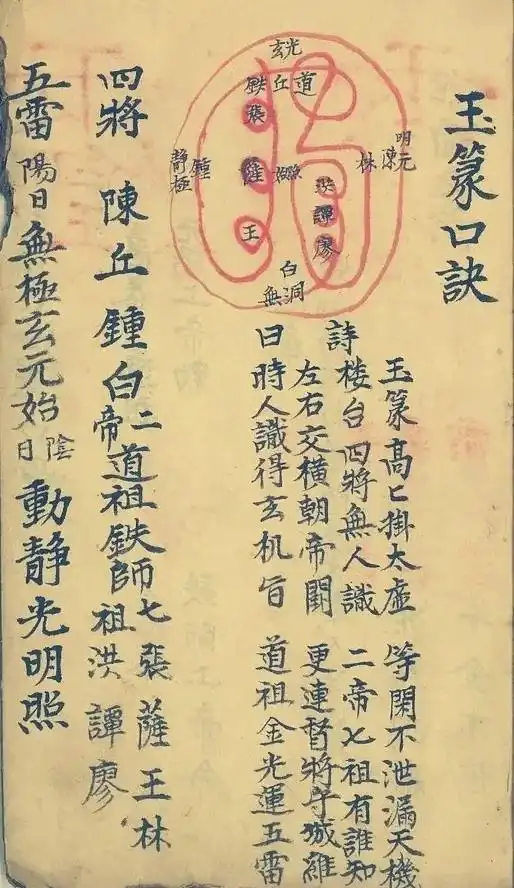 玉篆口訣
玄光
鉄丘道
張
薩
王
明元
陳
林
洪
譚
廖
鍾
静極
白
無洞
詩曰
玉篆高匕掛太虛 等閑不泄漏天機
楼台四將無人識 二帝七祖有誰知
左右交横朝帝闕 更連督將守城維
時人識得玄机旨 道祖金光運五雷
四將 陳丘鍾白 二帝 道祖鉄師 七祖 張薩王林洪譚廖
五雷 陽日 無極玄元始 陰日 動靜光明照